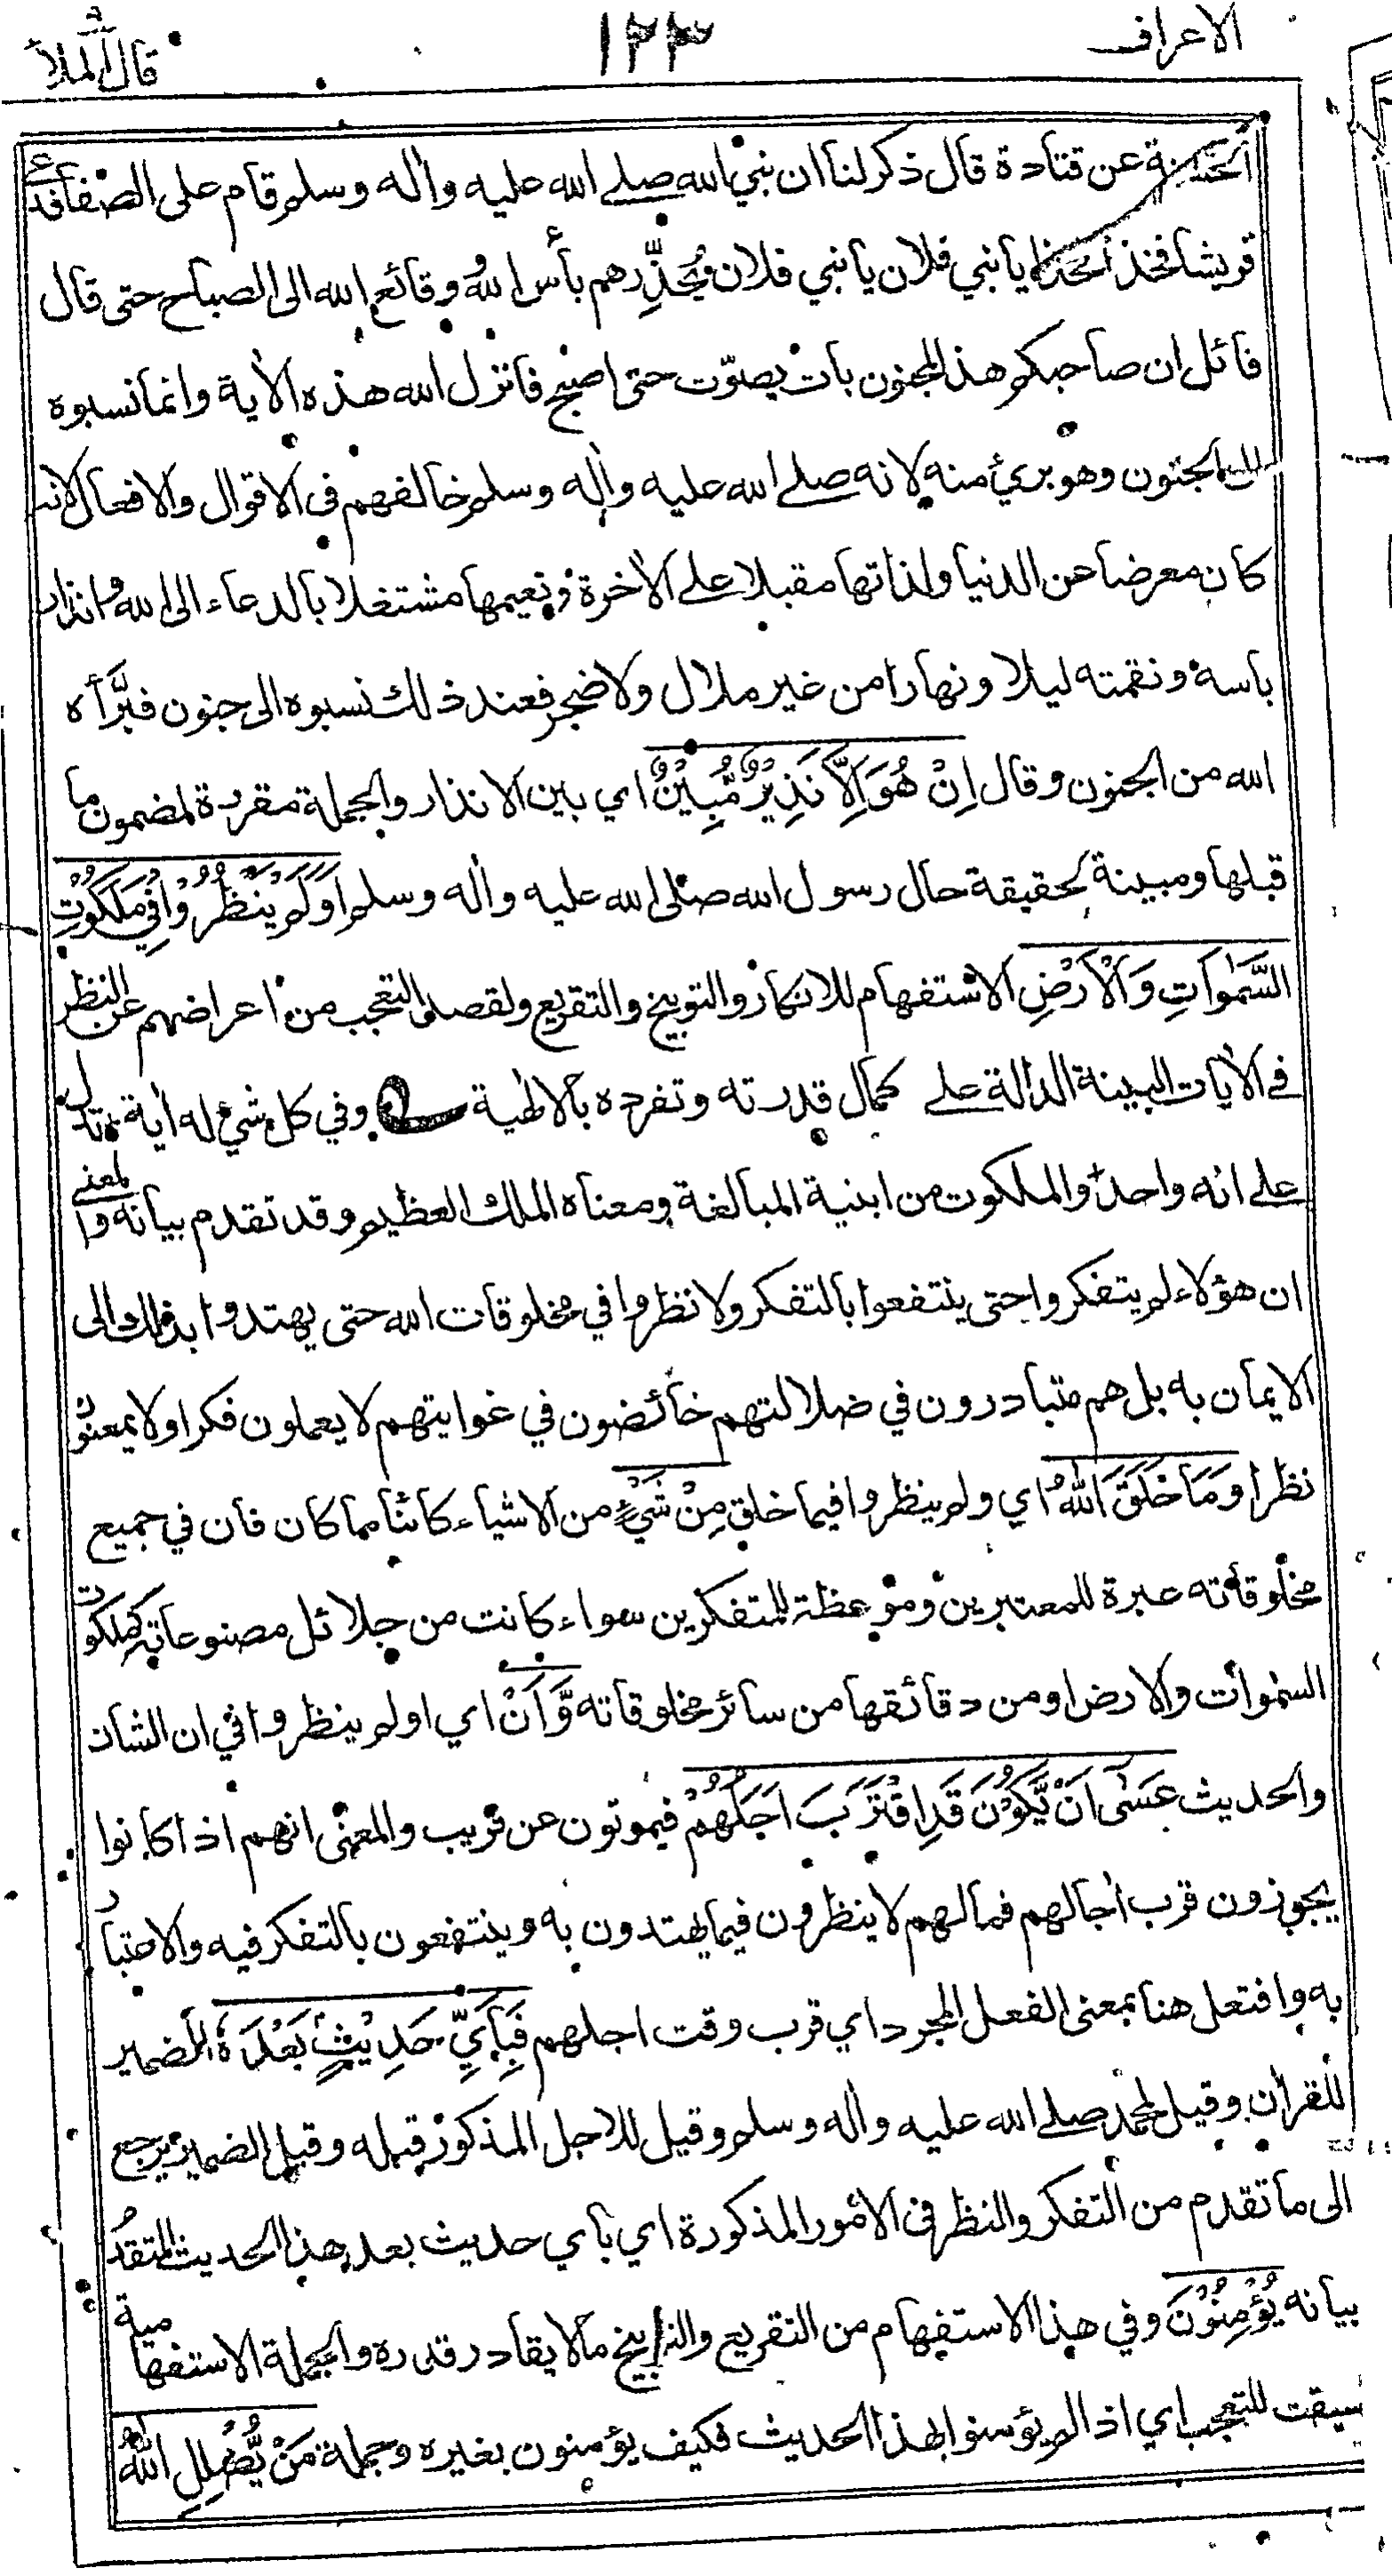 الاعراف
١٢٣
قال الملأ
عن قتادة قال ذكر لنا ان نبي الله صلى الله عليه واٰله وسلم قام على الصفا فدعا
قريشا فخذا فخذا يا بني فلان يا بني فلان ويُحذِّرهم بأس الله ووقائع الله الى الصباح حتى قال
قائل ان صاحبكم هذا المجنون بات يصوّت حتى اصبح فانزل الله هذه الاٰية وانما نسبوه
الى الجنون وهو بريء منه لانه صلى الله عليه واٰله وسلم خالفهم فى الاقوال والافعال لانه
كان معرضا عن الدنيا ولذاتها مقبلا على الاٰخرة ونعيمها مشتغلا بالدعاء الى الله وانذار
باسه ونقمته ليلا ونهارا من غير ملال ولا ضجر فعند ذلك نسبوه الى جنون فبرَّأه
الله من الجنون وقال اِنْ هُوَ اِلَّا نَذِيْرٌ مُّبِيْنٌ اي بين الانذار والجملة مقررة لمضمون ما
قبلها ومبينة لحقيقة حال رسول الله صلى الله عليه واٰله وسلم اَوَلَمْ يَنْظُرُوْا فِيْ مَلَكُوْتِ
السَّمٰوَاتِ وَالْاَرْضِ الاستفهام للانكار والتوبيخ والتقريع ولقصد التعجب من اعراضهم عن النظر
في الاٰيات البينة الدالة على كمال قدرته وتفرده بالالٰهية وفي كل شيء له اٰية تدل
على انه واحد والملكوت من ابنية المبالغة ومعناه الملك العظيم وقد تقدم بيانه والمعنى
ان هؤلاء لم يتفكروا حتى ينتفعوا بالتفكر ولا نظروا في مخلوقات الله حتى يهتدوا بذلك الى
الايمان به بل هم متبادرون في ضلالتهم خائضون في غوايتهم لا يعملون فكرا ولا يمعنون
نظرا وَمَا خَلَقَ اللّٰهُ اي ولم ينظروا فيما خلق مِنْ شَيْءٍ من الاشياء كائنا ما كان فان في جميع
مخلوقاته عبرة للمعتبرين وموعظة للمتفكرين سواء كانت من جلائل مصنوعاته كملكوت
السمٰوات والارض او من دقائقها من سائر مخلوقاته وَّاَنْ اي اولم ينظروا في ان الشان
والحديث عَسٰٓى اَنْ يَّكُوْنَ قَدِ اقْتَرَبَ اَجَلُهُمْ فيموتون عن قريب والمعنى انهم اذا كانوا
يجوزون قرب اٰجالهم فما لهم لا ينظرون فيما يهتدون به وينتفعون بالتفكر فيه والاعتبار
به وافتعل هنا بمعنى الفعل المجرد اي قرب وقت اجلهم فَبِاَيِّ حَدِيْثٍ بَعْدَهٗ الضمير
للقراٰن وقيل لمحمد صلى الله عليه واٰله وسلم وقيل للاجل المذكور قبله وقيل الضمير يرجع
الى ما تقدم من التفكر والنظر فى الامور المذكورة اي بأي حديث بعد هذا الحديث المتقدم
بيانه يُؤْمِنُوْنَ وفي هذا الاستفهام من التقريع والتوبيخ ما لا يقادر قدره والجملة الاستفهامية
سيقت للتعجب اي اذا لم يؤمنوا بهذا الحديث فكيف يؤمنون بغيره وجملة مَنْ يُّضْلِلِ اللّٰهُ